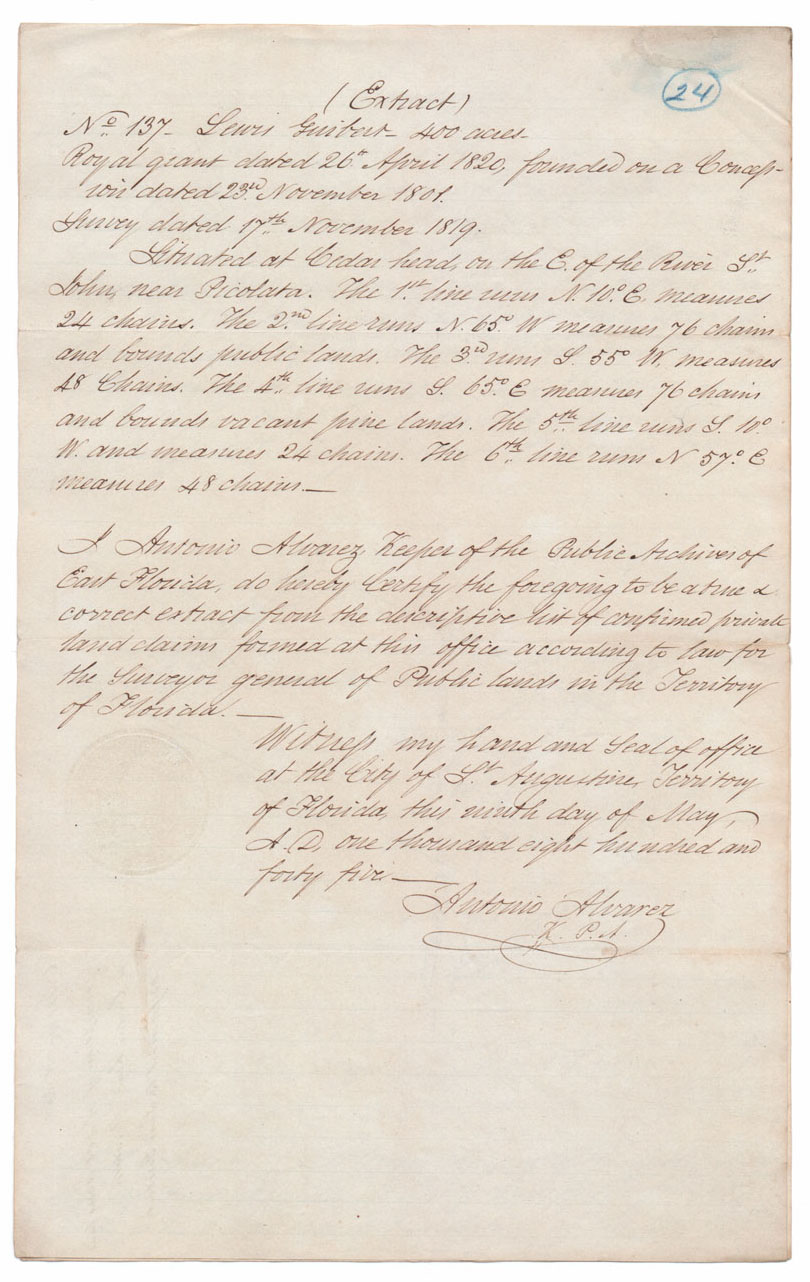 24
(Extract)
No 137- Lewis Guibert- 400 acres-
Royal grant dated 26th April 1820, founded on a Conces-
sion dated 23rd November 1801.
Survey dated 17th November 1819.
Situated at Cedar head, on the E. of the River St.
John, near Picolata. The 1st line runs N. 10° E. measures
24 chains. The 2nd line runs N. 65° W measures 76 chains
and bounds public lands. The 3rd runs S. 55° W. measures
48 Chains. The 4th line runs S. 65° E measures 76 chains
and bounds vacant pine lands. The 5th line runs S. 10°
W. and measures 24 chains. The 6th line runs N 57° E
measures 48 chains.—
I Antonio Alvarez, Keeper of the Public Archives of
East Florida, do hereby Certify the foregoing to be a true &
correct extract from the descriptive list of confirmed private
land claims formed at this office according to law for
the Surveyor general of Public lands in the Territory
of Florida.—
Witness my hand and Seal of office
at the City of St. Augustine, Territory
of Florida, this ninth day of May,
A. D. one thousand eight hundred and
forty five—
Antonio Alvarez
K. P. A.